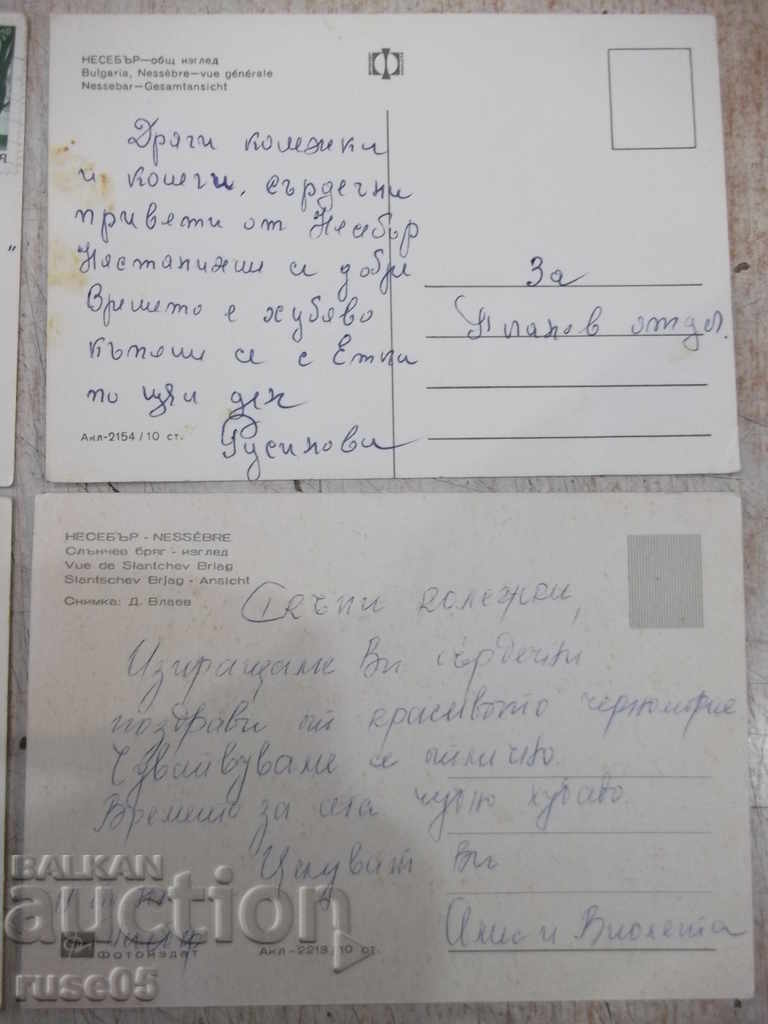 НЕСЕБЪР—общ изглед
Bulgaria, Nessèbre—vue générale
Nessebar—Gesamtansicht
Драги колежки
и колеги, сърдечни
привети от Несебър
Настанихме се добре
Времето е хубаво
къпем се с Етки
по цял ден
Русинови
За
Планов отдел.
Акл-2154/10 ст.
НЕСЕБЪР - NESSÈBRE
Слънчев бряг - изглед
Vue de Slantchev Briag
Slantschev Brjag - Ansicht
Снимка: Д. Влаев
Скъпи колежки,
Изпращаме Ви сърдечни
поздрави от красивото черноморие
Чувствуваме се отлично.
Времето за сега чудно хубаво.
Целуват Ви
и Виолета
ФОТОИЗДАТ
Акл-2213/10 ст.
BALKAN
auction
ruse05